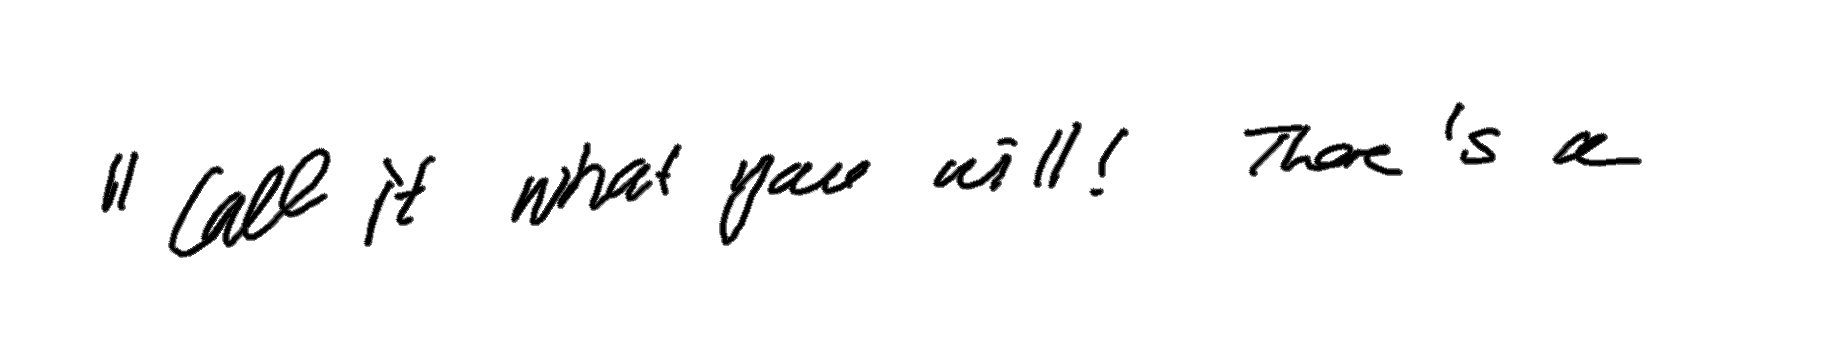 "Call it what you will! There's a